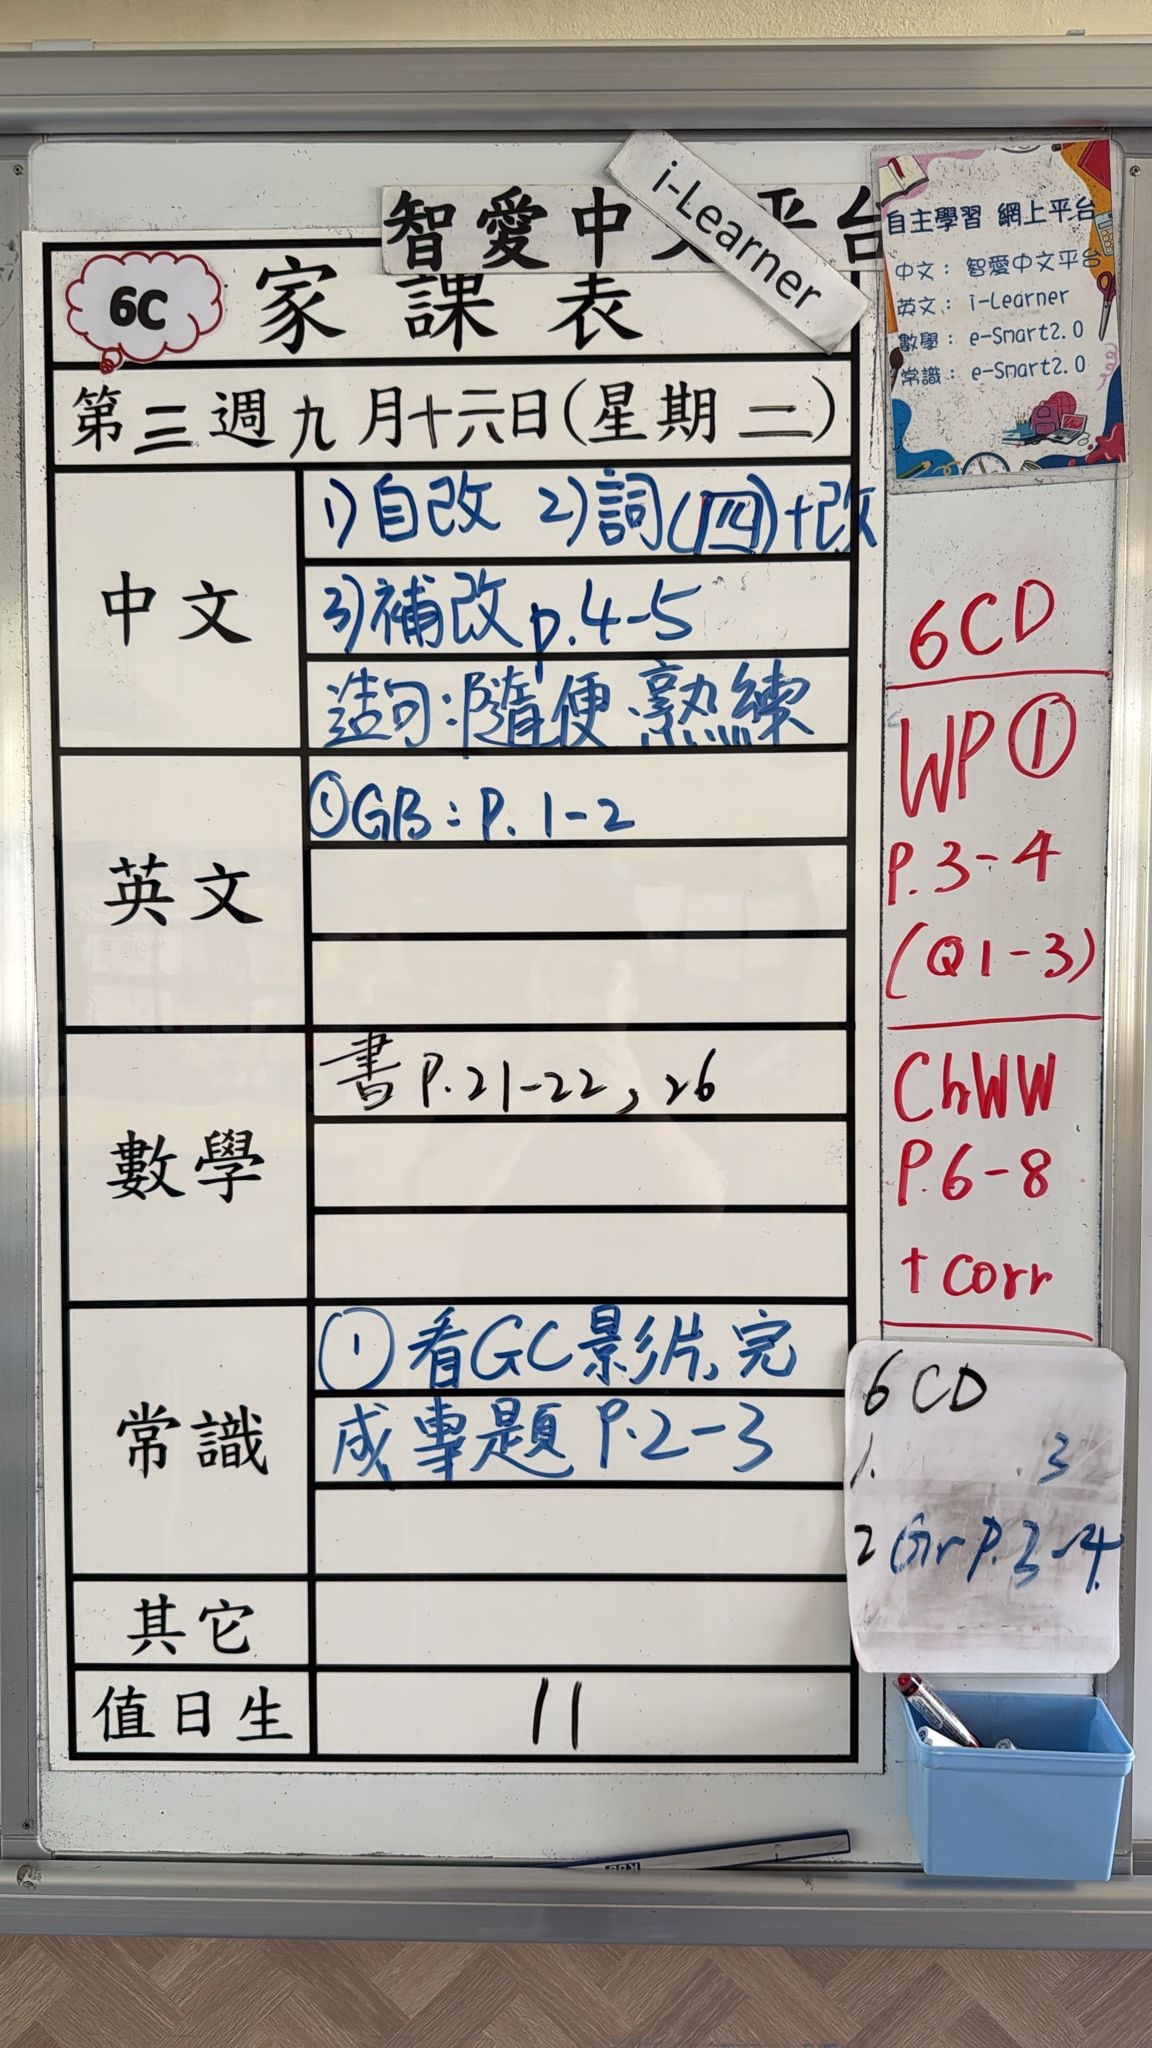 智愛中文平台
i-Learner
6C 家課表
第三週九月十六日(星期二)
中文
1)自改 2)詞(四)+改
3)補改 p.4-5
造句:隨便 熟練
英文
①GB: P. 1-2
數學
書 P.21-22, 26
常識
①看GC影片,完
成專題 P.2-3
其它
值日生
11
自主學習 網上平台
中文: 智愛中文平台
英文: i-Learner
數學: e-Smart2.0
常識: e-Smart2.0
6CD
WP①
P.3-4
(Q1-3)
ChWW
P.6-8
+ corr
6CD
1. .3
2 Gr P.3-4.